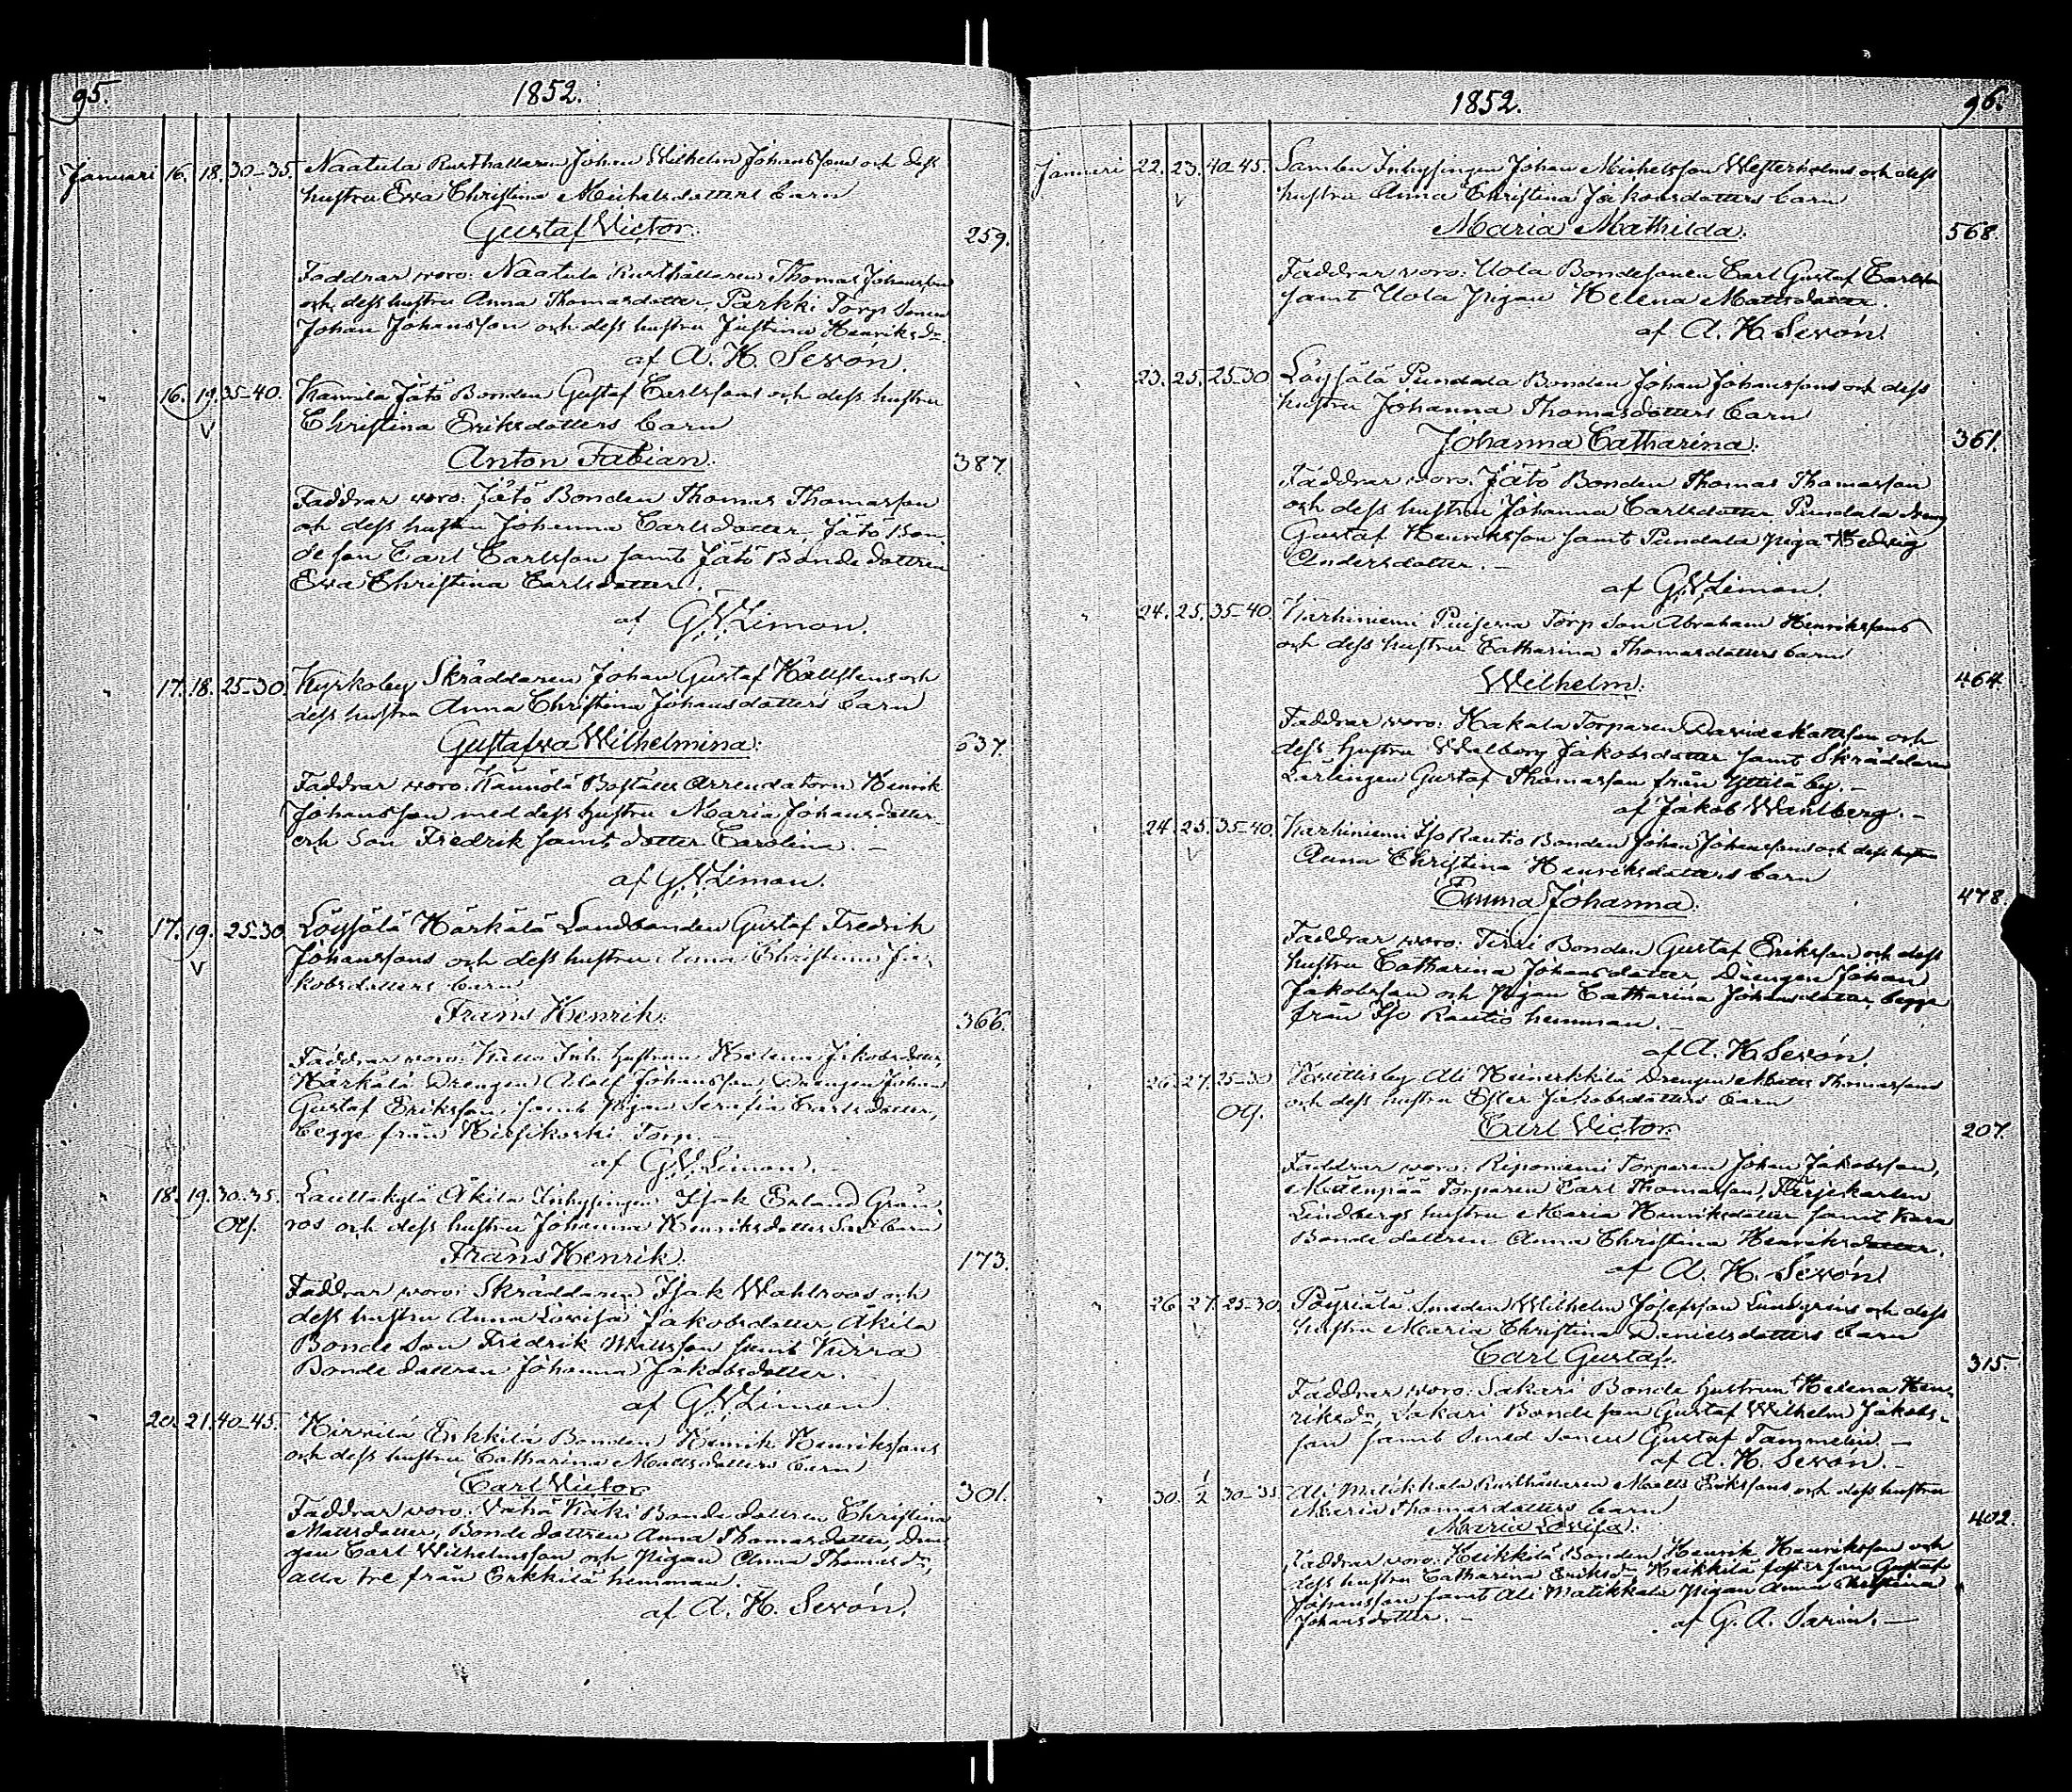 95. 1852.
Januari 16. 18. 30-35. Naatula Rusthållaren Johan Wilhelm Johanssons och dess
hustru Eva Christina Michelsdotters barn
Gustaf Victor. 259.
Faddrar voro: Naatula Rusthållaren Thomas Johansson
och dess hustru Anna Thomasdotter, Parkki Torp Sonen
Johan Johansson och dess hustru Justina Henriksdr.
af A. H. Sevón.
" 16. 19. 35-40. Kannila Jätö Bonden Gustaf Carlssons och dess hustru
Christina Eriksdotters barn
Anton Fabian. 387.
Faddrar voro: Jätö Bonden Thomas Thomasson
och dess hustru Johanna Carlsdotter, Jätö Bon-
de son Carl Carlsson samt Jätö Bonde dottren
Eva Christina Carlsdotter.
af G. W. Limon.
" 17. 18. 25-30. Kyrkoby Skräddaren Johan Gustaf Hällstens och
dess hustru Anna Christina Johansdotters barn
Gustafva Wilhelmina. 637.
Faddrar voro: Kännölä Boställes Arrendatorn Henrik
Johansson med dess hustru Maria Johansdotter
och son Fredrik samt dotter Carolina. –
af G. W. Limon.
" 17. 19. 25-30 Löysälä Härkälä Landbonden Gustaf Fredrik
Johanssons och dess hustru Anna Christina Ja-
kobsdotters barn
Frans Henrik. 366.
Faddrar voro: Inh. hustrun Helena Jakobsdotter,
Härkälä Drengen Adolf Johansson, Drengen Johan
Gustaf Eriksson samt Pigan Serafia Carlsdotter,
begge från Kirsikoski Torp. –
af G. W. Limon. –
" 18. 19. 30-35. Lauttakylä Äkilä Inhysingen Isak Erland Grön-
Oä. ros och dess hustru Johanna Henriksdotters barn
Frans Henrik. 173.
Faddrar voro: Skräddaren Isak Wahlroos och
dess hustru Anna Lovisa Jakobsdotter Äkilä
Bonde son Fredrik Mattsson samt Kirra
Bonde dottren Johanna Jakobsdotter. –
af G. W. Limon.
" 20. 21. 40-45. Hirvilä Erkkilä Bonden Henrik Henrikssons
och dess hustru Catharina Mattsdotters barn
Carl Victor 301.
Faddrar voro: Vähä Käki Bonde dottren Christina
Mattsdotter, Bonde dottren Anna Thomasdotter, Dren-
gen Carl Wilhelmsson och Pigan Anna Thomasdr.,
alla tre från Erkkilä hemman.
af A. H. Sevón.
1852. 96.
Januari 22. 23. 40-45. Sambu Inhysingen Johan Michelsson Westerholms och dess
hustru Anna Christina Jakobsdotters barn
Maria Mathilda. 568.
Faddrar voro: Uola Bondesonen Carl Gustaf Carlsson
samt Uola Pigan Helena Mattsdotter.
af A. H. Sevón.
" 23. 25. 25-30 Löysälä Pundala Bonden Johan Johanssons och dess
hustru Johanna Thomasdotters barn
Johanna Catharina. 361.
Faddrar voro: Jätö Bonden Thomas Thomasson
och dess hustru Johanna Carlsdotter, Pundala dreng
Gustaf Henriksson samt Pundala piga Hedvig
Andersdotter. –
af G. W. Limon.
" 24. 25. 35-40. Karhiniemi Torp Son Abraham Henrikssons
och dess hustru Catharina Thomasdotters barn
Wilhelm. 464.
Faddrar voro: Kakala Torparen David Mattsson och
dess hustru Walborg Jakobsdotter samt Skräddare
Lärlingen Gustaf Thomasson från Yttilä by. –
af Jakob Wahlberg. –
" 24. 25. 35-40. Karhiniemi Iso Rautio Bonden Johan Johanssons och dess hustru
Anna Christina Henriksdotters barn
Emma Johanna. 478.
Faddrar voro: Tirri Bonden Gustaf Eriksson och dess
hustru Catharina Johansdotter, Drengen Johan
Jakobsson och Pigan Catharina Johansdotter, begge
från Iso Rautio hemman. –
af A. H. Sevón
" 26. 27. 25-30 Huittisby Ali Heinerkkilä Drengen Matts Thomassons
Oä. och dess hustru Ester Jakobsdotters barn
Carl Victor 207.
Faddrar voro: Riponiemi Torparen Johan Jakobsson,
Mäenpää Torparen Carl Thomasson, Färjekarlen
Lindbergs hustru Maria Henriksdotter samt
Bonde dottren Anna Christina Henriksdotter.
af A. H. Sevón
" 26. 27. 25-30 Pöyriälä Smeden Wilhelm Josefsson Lindgrens och dess
hustru Maria Christina Danielsdotters barn
Carl Gustaf. 315.
Faddrar voro: Sakari Bonde hustrun Helena Hen-
riksdr., Sakari Bonde son Gustaf Wilhelm Jakobs-
son samt Smed sonen Gustaf Tammelin. –
af A. H. Sevón. –
" 30. 1/2 30-35 Ali Matikkala Rusthållaren Matts Erikssons och dess hustru
Maria Thomasdotters barn
Maria Lovisa. 402.
Faddrar voro: Heikkilä Bonden Henrik Henriksson och
dess hustru Catharina Eriksdr., Heikkilä foster son Gustaf
Johansson samt Ali Matikkala Pigan Anna Christina
Johansdotter. –
af G. A. Sarin. –